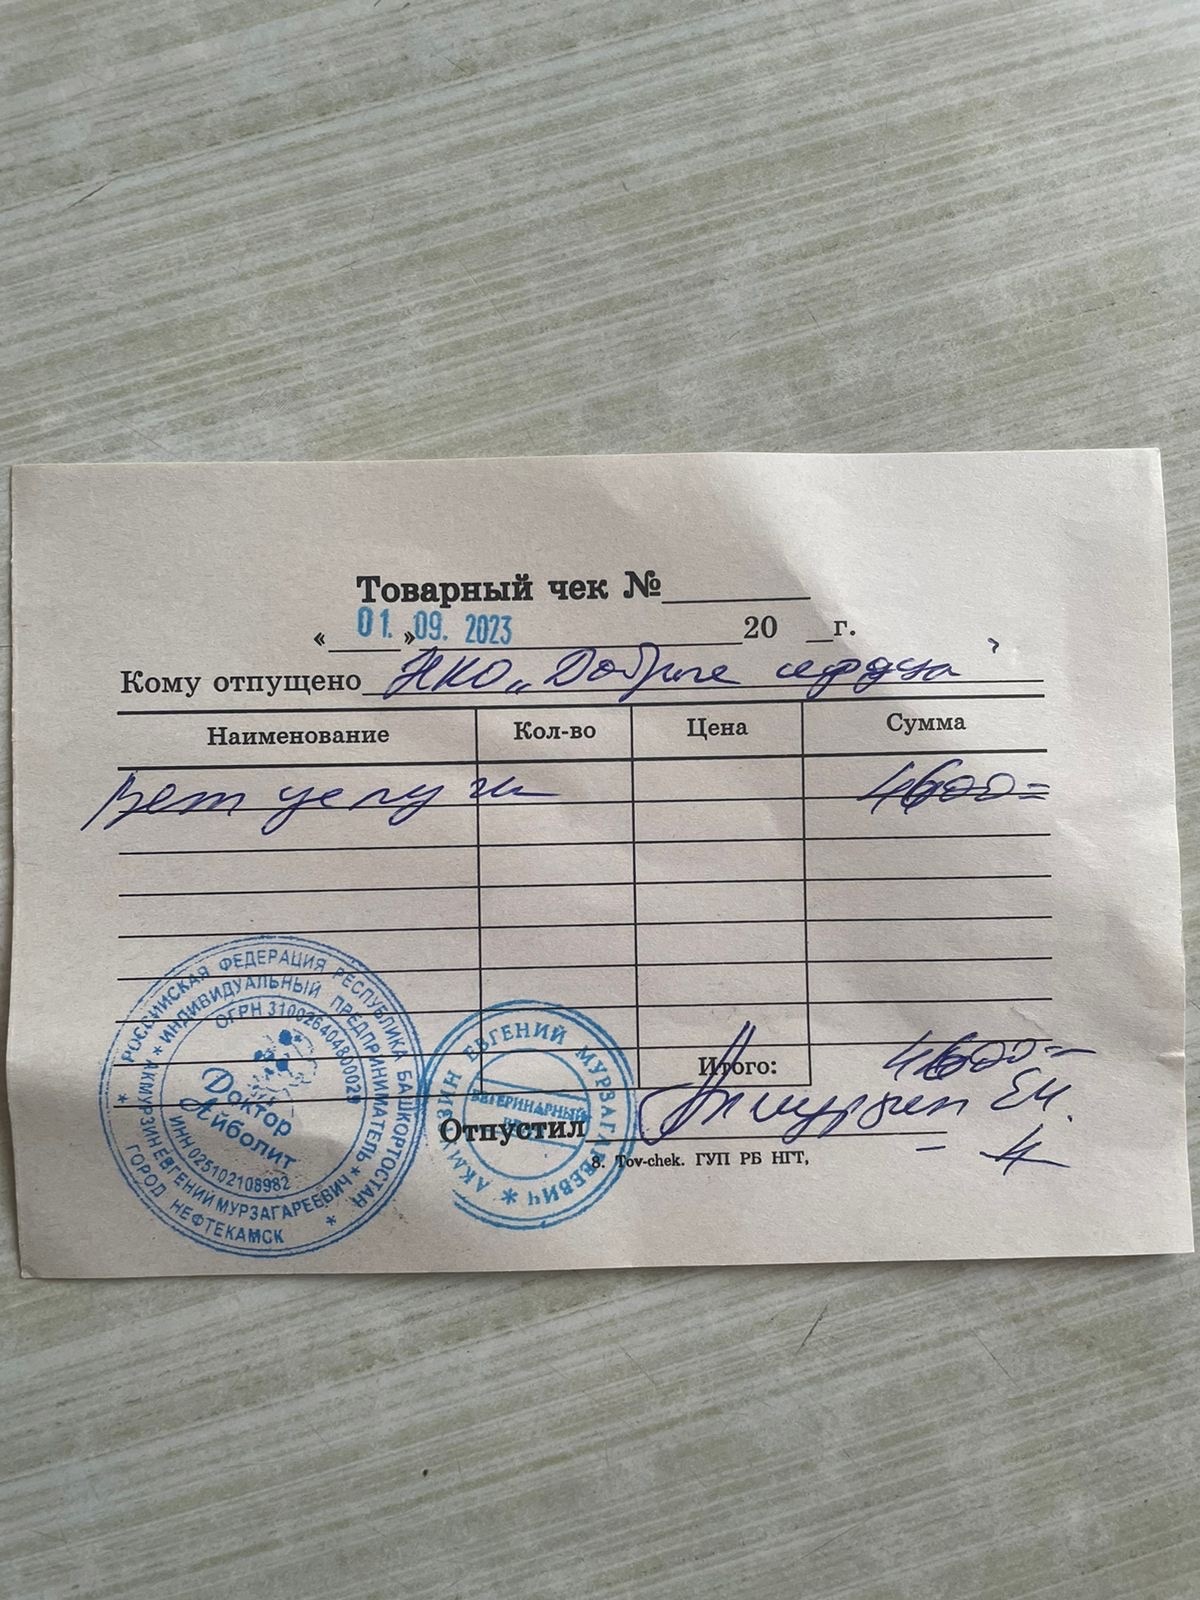 Товарный чек №
« 01. » 09. 2023 20 г.
Кому отпущено НКО „Добрые сердца"
Наименование Кол-во Цена Сумма
Вет услуги 4600=
Итого: 4600=
Отпустил Акмурзин ЕМ.
8. Tov-chek. ГУП РБ НГТ,
РОССИЙСКАЯ ФЕДЕРАЦИЯ РЕСПУБЛИКА БАШКОРТОСТАН
* ГОРОД НЕФТЕКАМСК *
* ИНДИВИДУАЛЬНЫЙ ПРЕДПРИНИМАТЕЛЬ *
АКМУРЗИН ЕВГЕНИЙ МУРЗАГАРЕЕВИЧ
ОГРН 310026404800029
Доктор
Айболит
ИНН 025102108982
АКМУРЗИН ЕВГЕНИЙ МУРЗАГАРЕЕВИЧ *
ВЕТЕРИНАРНЫЙ
ВРАЧ